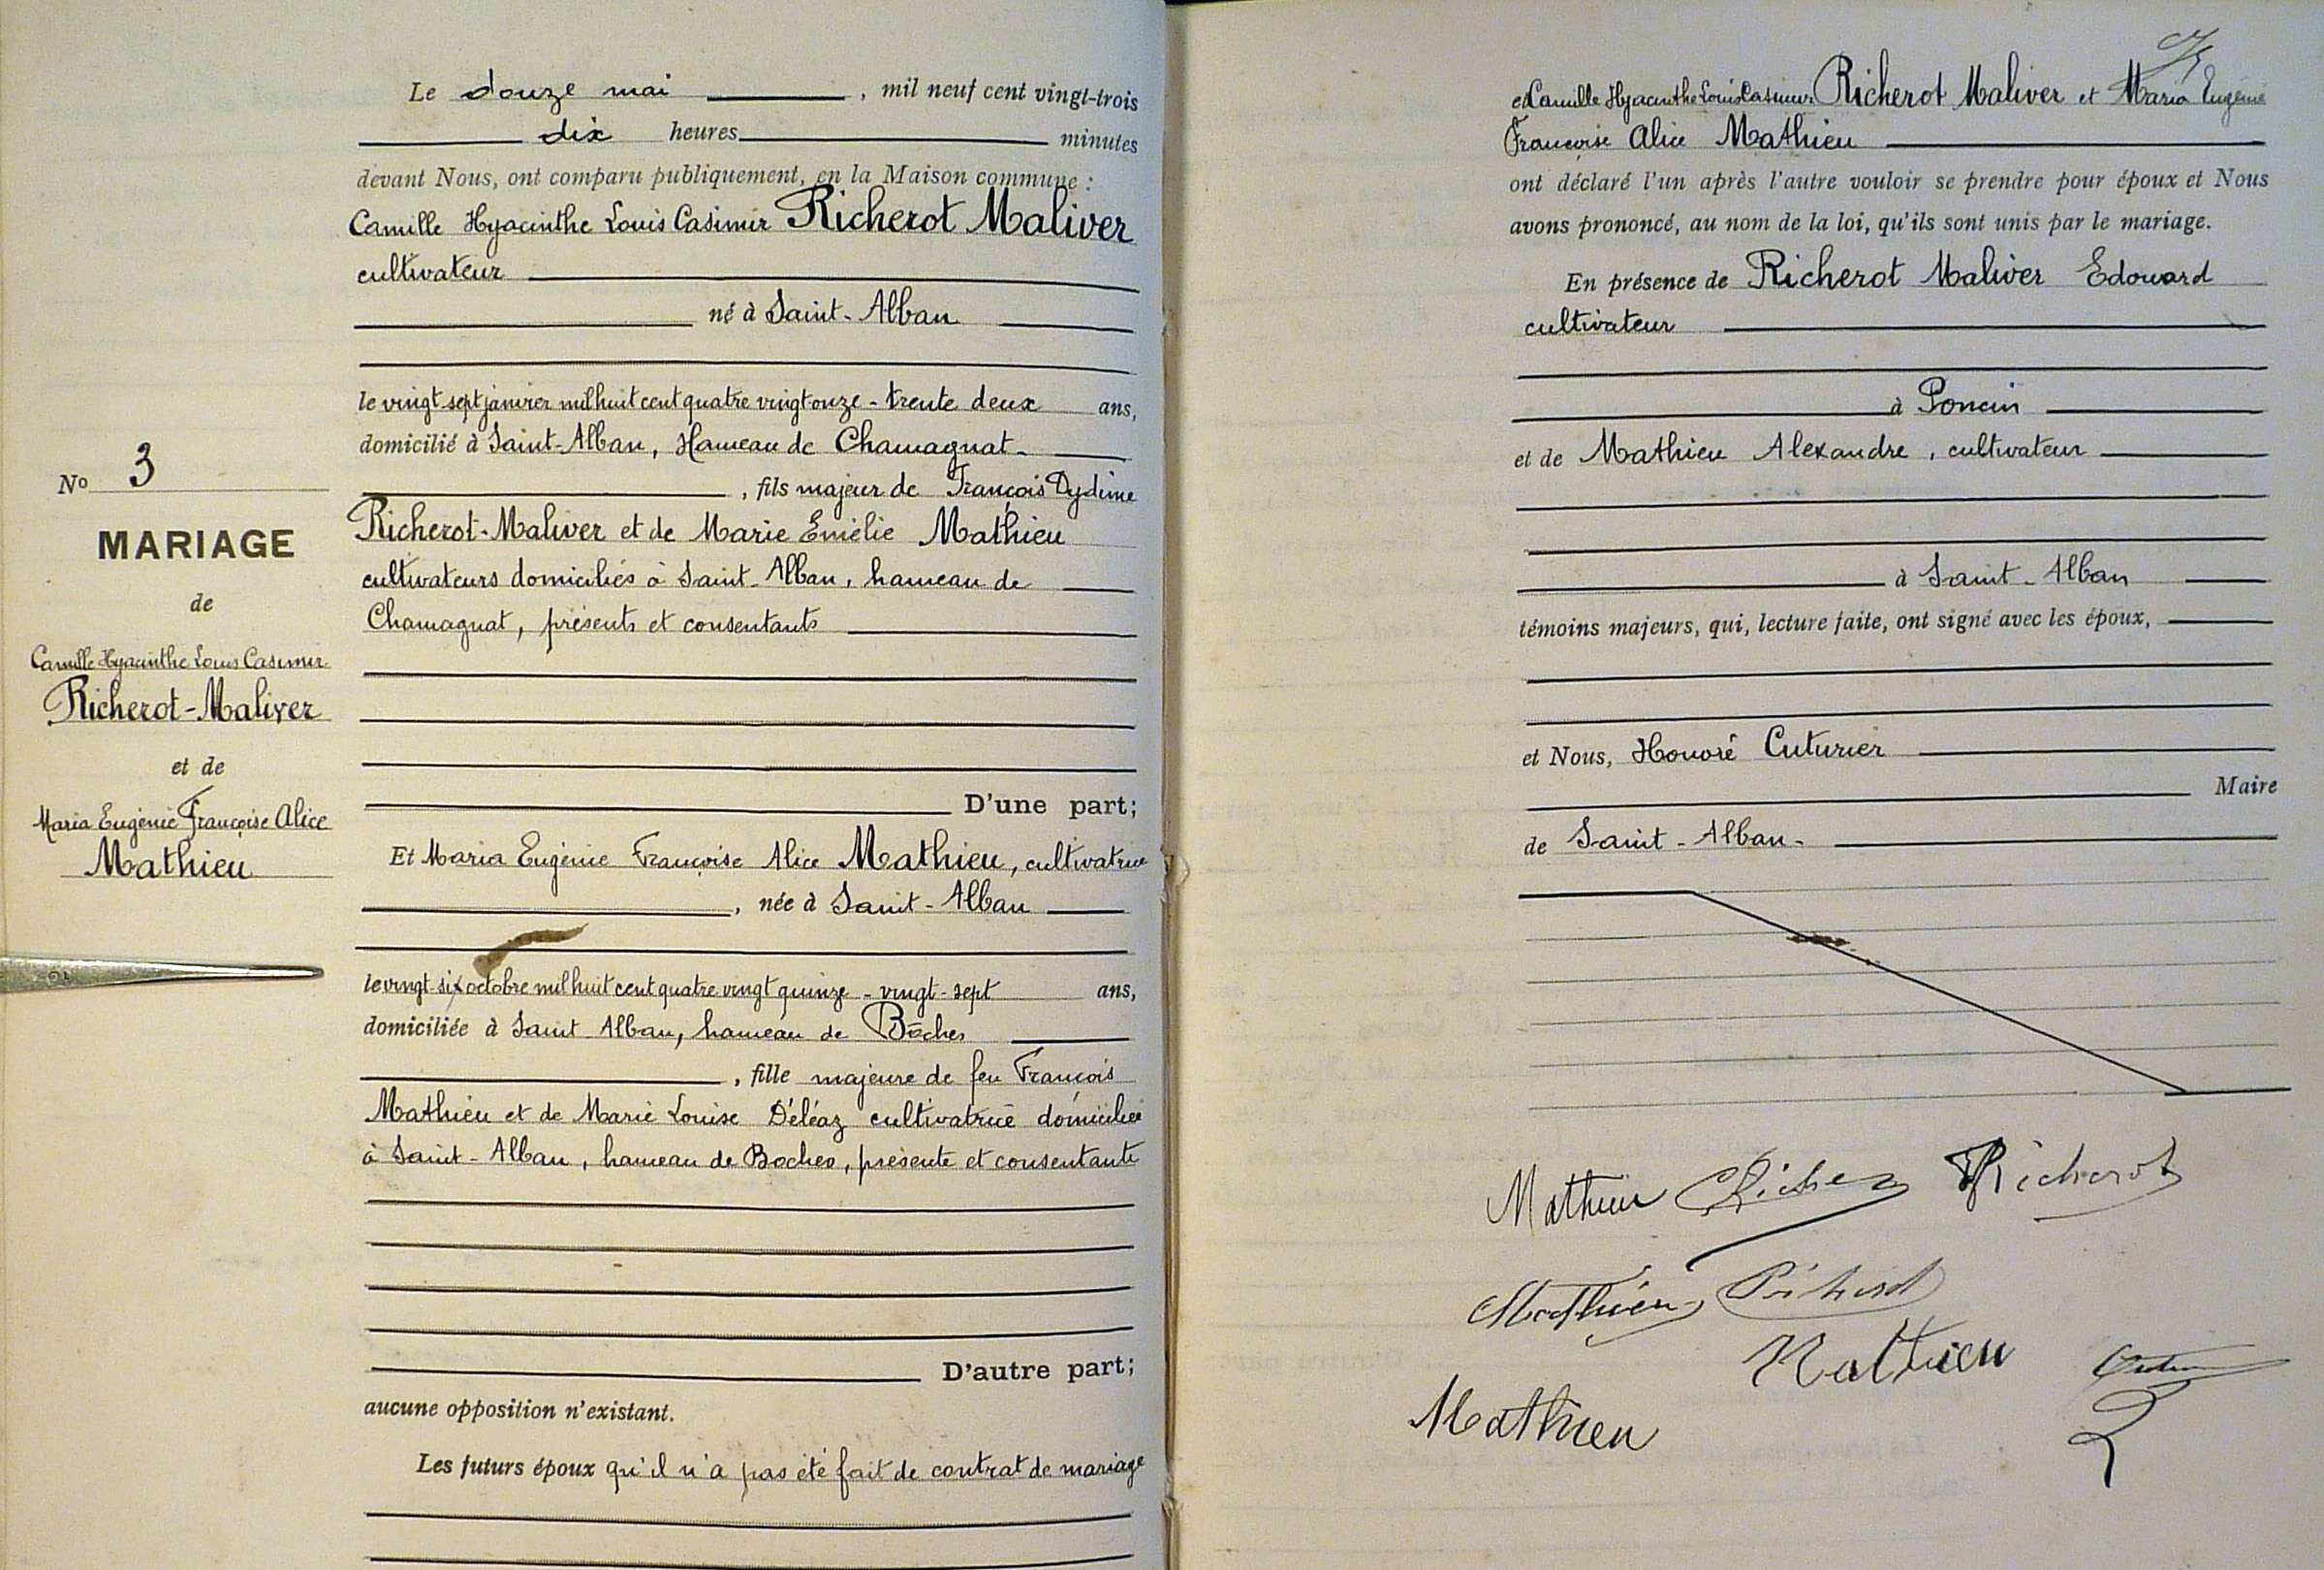 Le douze mai , mil neuf cent vingt-trois
dix heures minutes
devant Nous, ont comparu publiquement, en la Maison commune :
Camille Hyacinthe Louis Casimir Richerot Maliver
cultivateur
né à Saint-Alban
le vingt-sept janvier mil huit cent quatre vingt onze - trente deux ans,
domicilié à Saint-Alban, Hameau de Chamagnat-
, fils majeur de François Dydime
Richerot-Maliver et de Marie Emélie Mathieu
cultivateurs domiciliés à Saint-Alban, hameau de
Chamagnat, présents et consentants
D'une part;
Et Maria Eugénie Françoise Alice Mathieu, cultivatrice
, née à Saint-Alban
le vingt-six octobre mil huit cent quatre vingt quinze - vingt-sept ans,
domiciliée à Saint Alban, hameau de Boches
, fille majeure de feu François
Mathieu et de Marie Louise Déléaz cultivatrice domiciliée
à Saint-Alban, hameau de Boches, présente et consentante
D'autre part;
aucune opposition n'existant.
Les futurs époux qu'il n'a pas été fait de contrat de mariage
No 3
MARIAGE
de
Camille Hyacinthe Louis Casimir
Richerot-Maliver
et de
Maria Eugénie Françoise Alice
Mathieu
et Camille Hyacinthe Louis Casimir Richerot Maliver et Maria Eugénie
Françoise Alice Mathieu
ont déclaré l'un après l'autre vouloir se prendre pour époux et Nous
avons prononcé, au nom de la loi, qu'ils sont unis par le mariage.
En présence de Richerot Maliver Edouard
cultivateur
à Poncin
et de Mathieu Alexandre, cultivateur
à Saint-Alban
témoins majeurs, qui, lecture faite, ont signé avec les époux,
et Nous, Honoré Cuturier
Maire
de Saint-Alban-
Mathieu Richerot
Mathieu
Mathieu
Mathieu